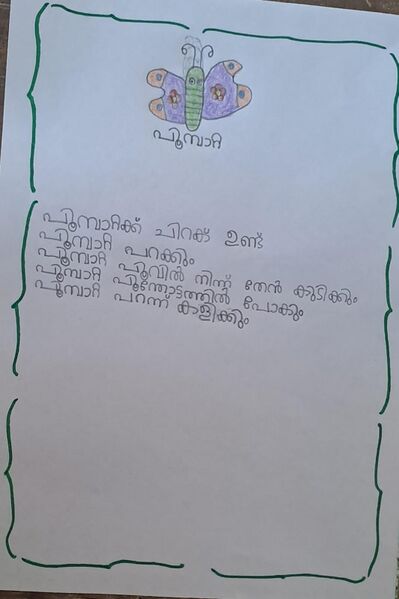 പൂമ്പാറ്റ
പൂമ്പാറ്റക്ക് ചിറക് ഉണ്ട്
പൂമ്പാറ്റ പറക്കും
പൂമ്പാറ്റ പൂവിൽ നിന്ന് തേൻ കുടിക്കും
പൂമ്പാറ്റ പൂന്തോട്ടത്തിൽ പോകും
പൂമ്പാറ്റ പറന്ന് കളിക്കും